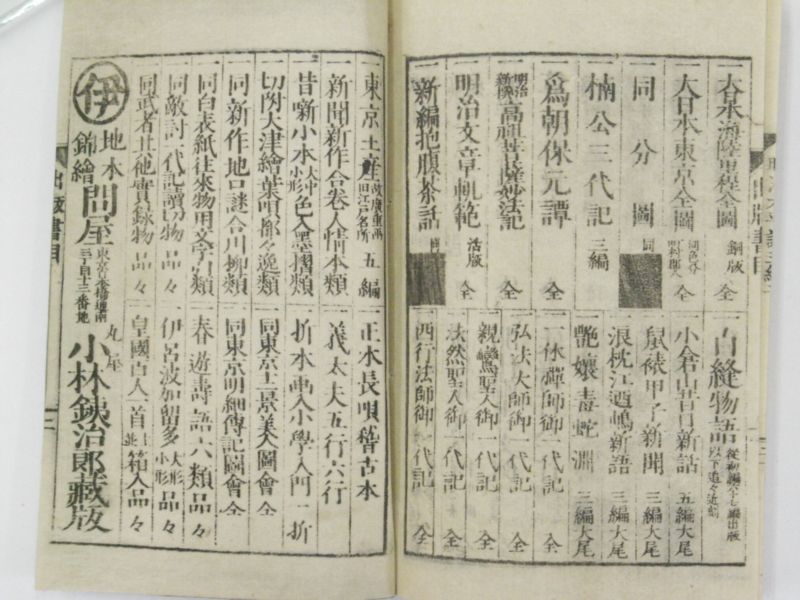 大日本海陸里程全圖 銅版 全
大日本東京全圖 全
同分圖 同
楠公三代記 三編
爲朝保元譚 全
明治新撰 高祖菩薩妙法記 全
明治文章軌範 活版 全
新編抱腹茶話
白縫物語
小倉山昔日新話 五編大尾
鼠裱甲子新聞 三編大尾
浪枕江逎嶋新語 三編大尾
艶嬢毒蛇淵 三編大尾
一休禪師御一代記 全
弘法大師御一代記 全
親鸞聖人御一代記 全
法然聖人御一代記 全
西行法師御一代記 全
東京土産 故廣重画 旧江戸名所 五編
新聞新作合卷人情本類
昔噺小本 大中小形 色入墨摺類
切附大津繪葉唄都々逸類
同新作地口謎合川柳類
同白表紙往來物用文字引類
同敵討一代記讀切物品々
同武者其他實録物品々
正本長唄稽古本
義太夫五行六行
折本画入小學入門一折
同東京十二景美人圖會 全
同東京明細傳記圖會 全
春遊壽語六類品々
伊呂波加留多 大形 小形 品々
皇國百人一首 箱入品々
伊
地本
錦繪
問屋
丸屋
小林銕治郎藏版
出版書目